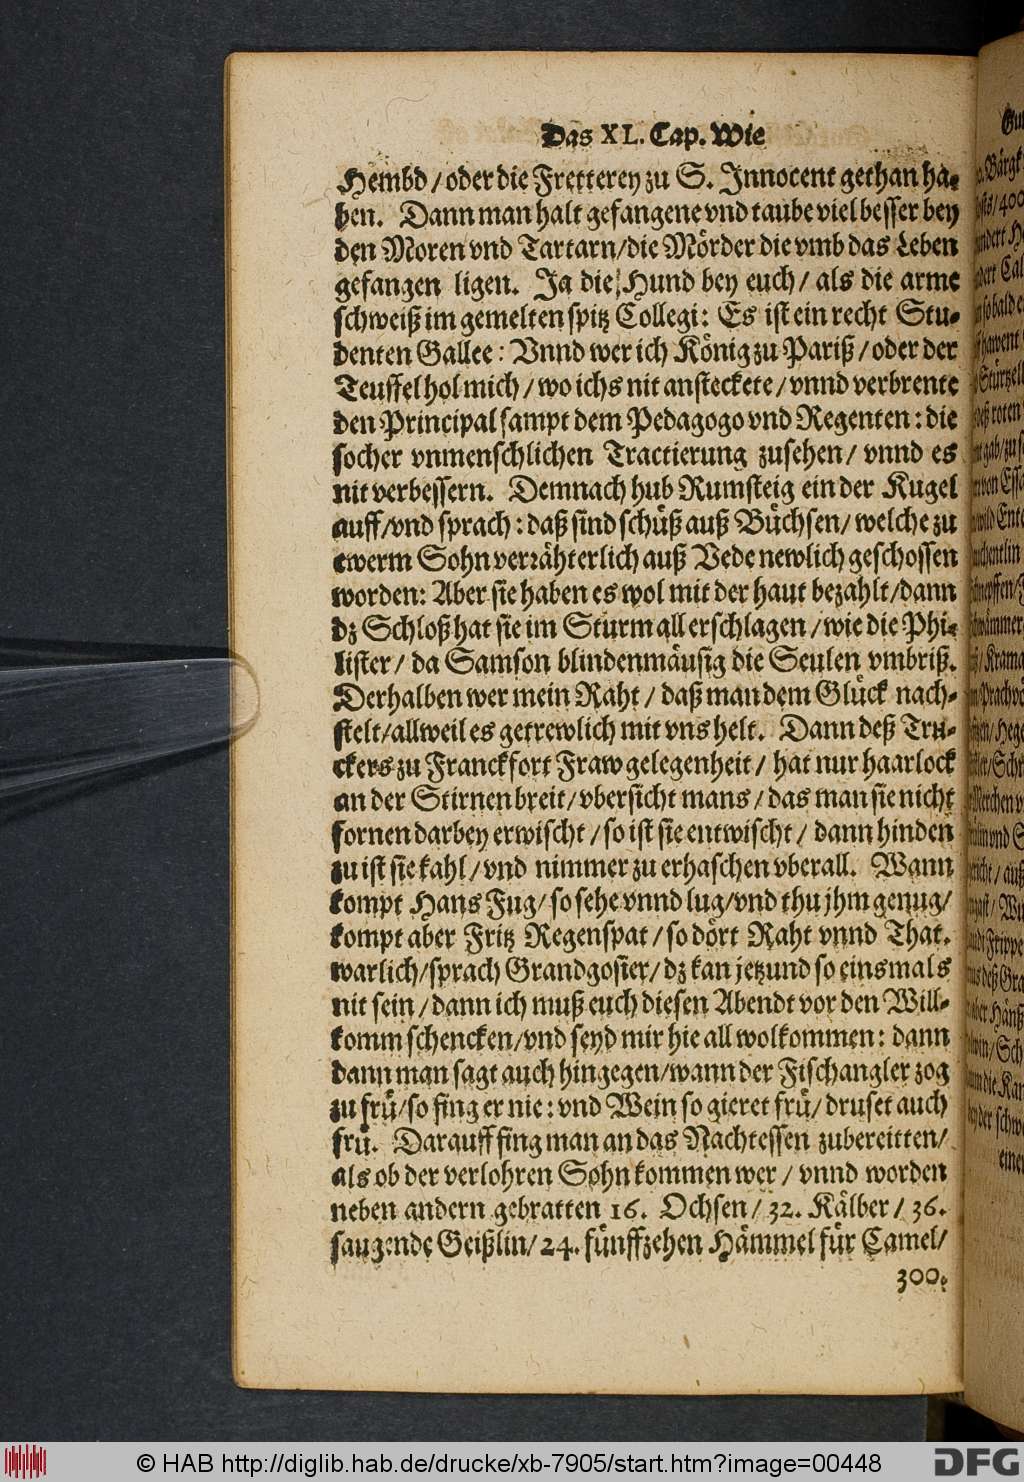 Das XL. Cap. Wie
Hembd / oder die Fretterey zu S. Innocent gethan ha-
ben. Dann man halt gefangene vnd taube viel besser bey
den Moren vnd Tartarn/die Mörder die vmb das Leben
gefangen ligen. Ja die Hund bey euch/ als die arme
schweiß im gemelten spitz Collegi: Es ist ein recht Stu-
denten Gallee: Vnnd wer ich König zu Pariß / oder der
Teuffel hol mich / wo ichs nit ansteckete / vnnd verbrente
den Principal sampt dem Pedagogo vnd Regenten: die
socher vnmenschlichen Tractierung zusehen/ vnnd es
nit verbessern. Demnach hub Rumsteig ein der Kugel
auff/vnd sprach: daß sind schüß auß Büchsen/ welche zu
ewerm Sohn verrähterlich auß Vede newlich geschossen
worden: Aber sie haben es wol mit der haut bezahlt/dann
dz Schloß hat sie im Sturm all erschlagen / wie die Phi-
lister / da Samson blindenmäusig die Seulen vmbriß.
Derhalben wer mein Raht / daß man dem Glück nach-
stelt/allweil es getrewlich mit vns helt. Dann deß Tru-
ckers zu Franckfort Fraw gelegenheit / hat nur haarlock
an der Stirnen breit/ vbersicht mans / das man sie nicht
fornen darbey erwischt / so ist sie entwischt / dann hinden
zu ist sie kahl / vnd nimmer zu erhaschen vberall. Wann
kompt Hans Fug/ so sehe vnnd lug/vnd thu jhm genug/
kompt aber Fritz Regenspat / so dört Raht vnnd That.
warlich/sprach Grandgosier/ dz kan jetzund so einsmals
nit sein / dann ich muß euch diesen Abendt vor den Will-
komm schencken/vnd seyd mir hie all wolkommen: dann
dann man sagt auch hingegen/wann der Fischangler zog
zu frü/so fing er nie: vnd Wein so gieret frü/ druset auch
frü. Darauff fing man an das Nachtessen zubereitten/
als ob der verlohren Sohn kommen wer / vnnd worden
neben andern gebratten 16. Ochsen / 32. Kälber / 36.
saugende Geißlin/ 24. fünffzehen Hämmel für Camel/
300.
© HAB http://diglib.hab.de/drucke/xb-7905/start.htm?image=00448
DFG